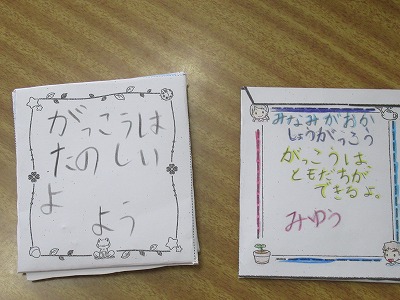 がっこうは
たのしい
よ
よう
みなみがおか
しょうがっこう
がっこうは、
ともだちが
できるよ。
みゆう